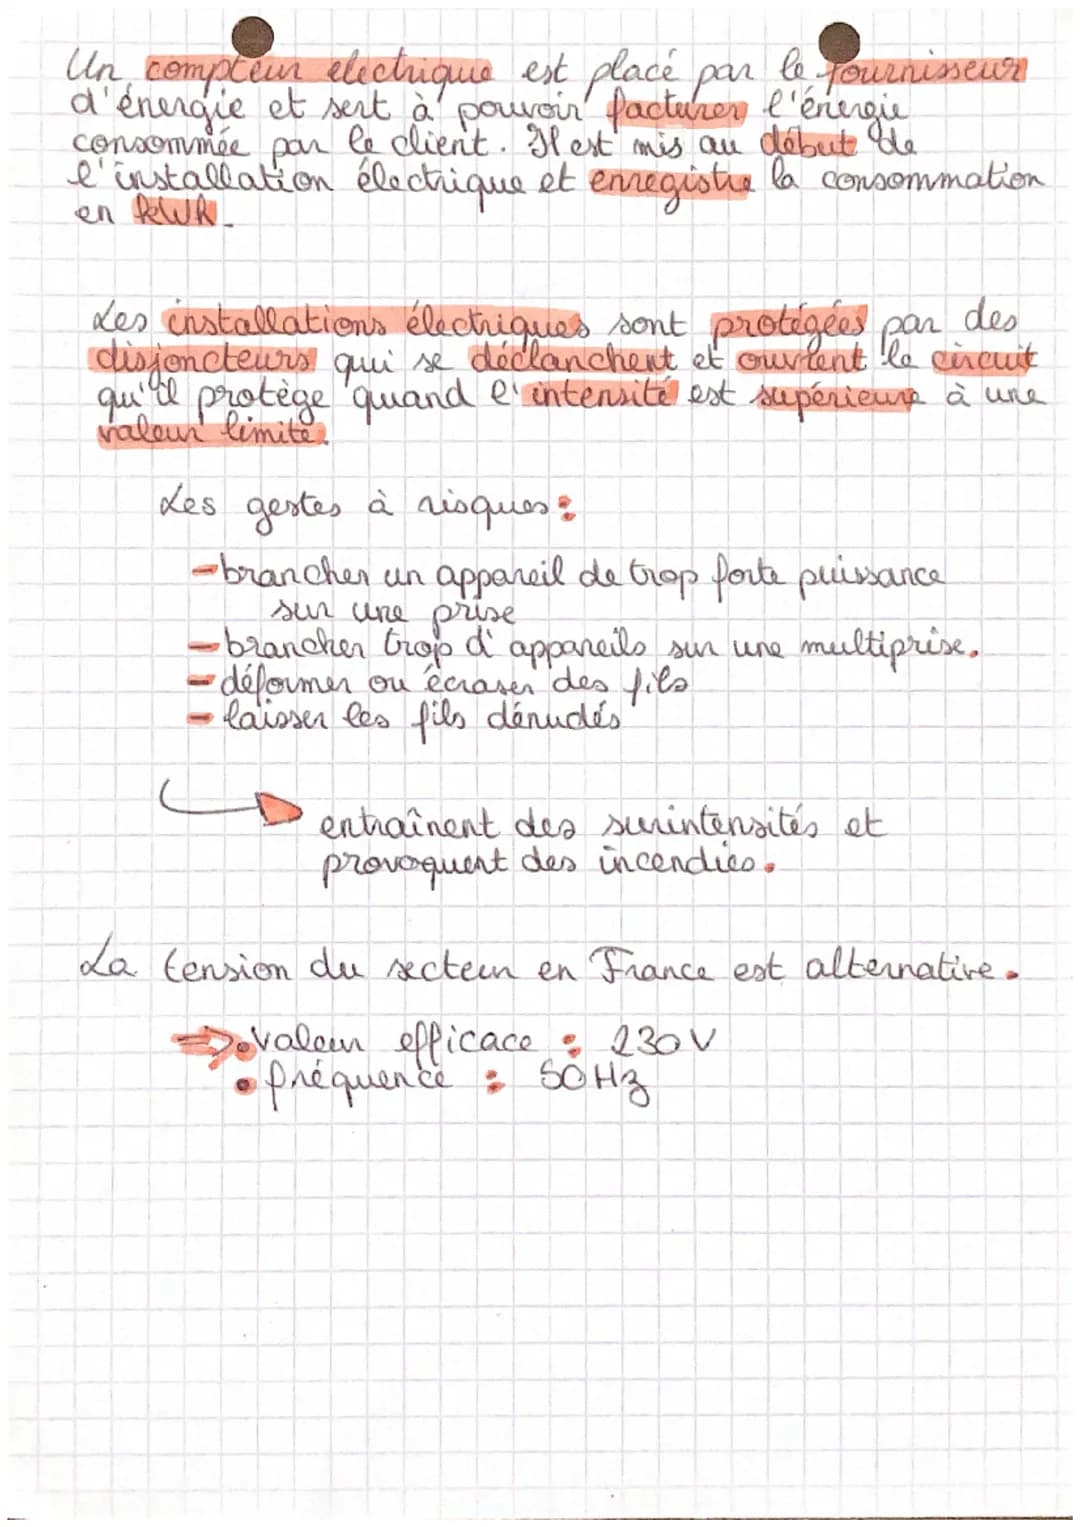 Un compteur électrique est placé par le fournisseur
d'énergie et sert à pouvoir facturer l'énergie
consommée par le client. Il est mis au début de
l'installation électrique et enregistre la consommation
en kWh.
Les installations électriques sont protégées par des
disjoncteurs qui se déclanchent et ouvrent le circuit
qu'il protège quand l'intensité est supérieure à une
valeur limite.
Les gestes à risques :
- brancher un appareil de trop forte puissance
sur une prise
- brancher trop d'appareils sur une multiprise.
- déformer ou écraser des fils
- laisser les fils dénudés
entraînent des surintensités et
provoquent des incendies.
La tension du secteur en France est alternative.
⇒ • valeur efficace : 230 V
• fréquence : 50 Hz